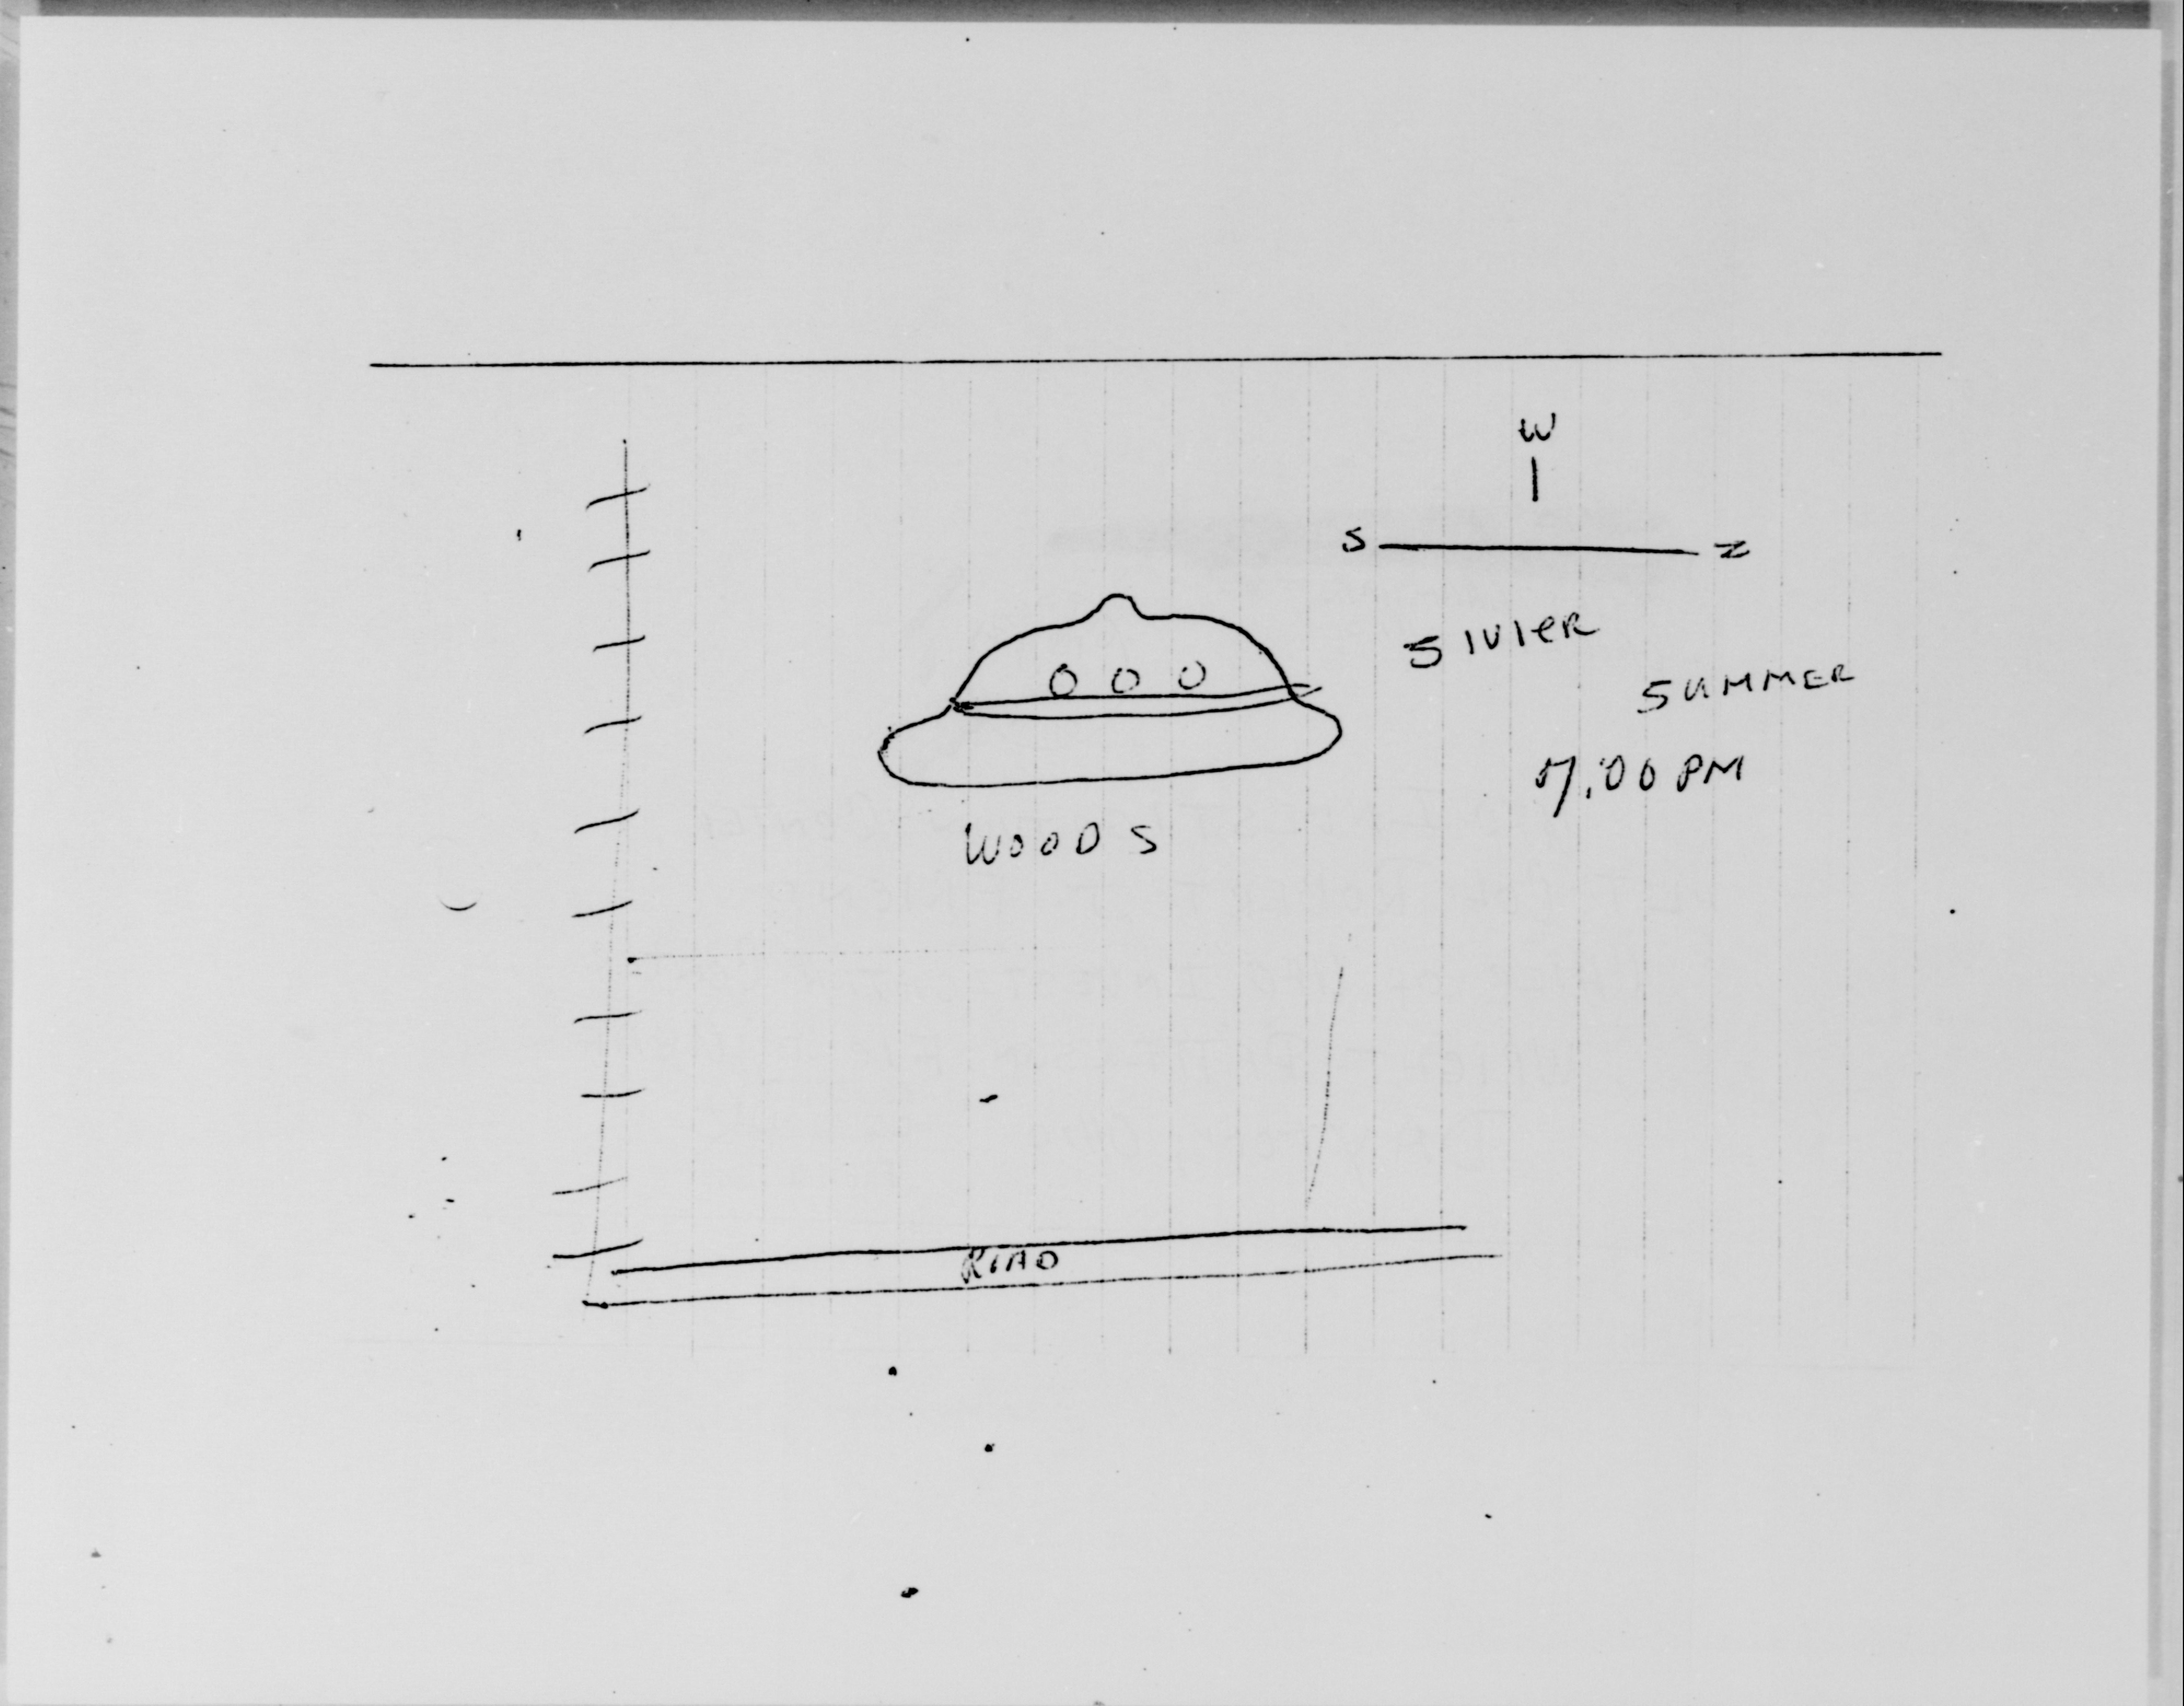 W
S N
SIlvER
SUMMER
7:00 PM
WOODS
ROAD